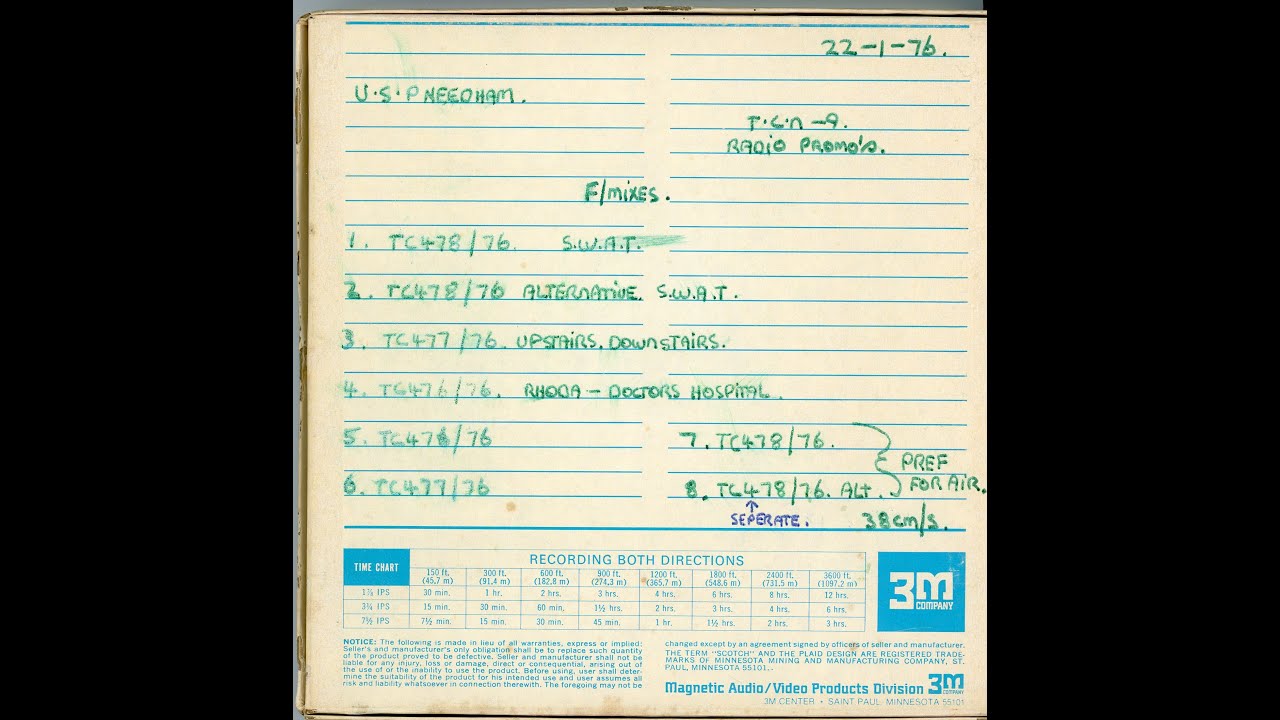 22-1-76.
U.S.P NEEDHAM.
T.C.N -9.
RADIO PROMO'S.
F/MIXES.
1. TC478/76. S.W.A.T.
2. TC478/76 ALTERNATIVE. S.W.A.T.
3. TC477/76. UPSTAIRS. DOWNSTAIRS.
4. TC476/76. RHODA - DOCTORS HOSPITAL.
5. TC476/76
6. TC477/76
7. TC478/76.
8. TC478/76. ALT.
PREF
FOR AIR.
↑
SEPERATE.
38cm/s.
RECORDING BOTH DIRECTIONS
TIME CHART 150 ft. (45,7 m) 300 ft. (91,4 m) 600 ft. (182,8 m) 900 ft. (274,3 m) 1200 ft. (365,7 m) 1800 ft. (548.6 m) 2400 ft. (731.5 m) 3600 ft. (1097.2 m)
1⅞ IPS 30 min. 1 hr. 2 hrs. 3 hrs. 4 hrs. 6 hrs. 8 hrs. 12 hrs.
3¾ IPS 15 min. 30 min. 60 min, 1½ hrs. 2 hrs. 3 hrs. 4 hrs. 6 hrs.
7½ IPS 7½ min. 15 min. 30 min. 45 min. 1 hr. 1½ hrs. 2 hrs. 3 hrs.
3M
COMPANY
NOTICE: The following is made in lieu of all warranties, express or implied:
Seller's and manufacturer's only obligation shall be to replace such quantity
of the product proved to be defective. Seller and manufacturer shall not be
liable for any injury, loss or damage, direct or consequential, arising out of
the use of or the inability to use the product. Before using, user shall deter-
mine the suitability of the product for his intended use and user assumes all
risk and liability whatsoever in connection therewith. The foregoing may not be
changed except by an agreement signed by officers of seller and manufacturer.
THE TERM "SCOTCH" AND THE PLAID DESIGN ARE REGISTERED TRADE-
MARKS OF MINNESOTA MINING AND MANUFACTURING COMPANY, ST.
PAUL, MINNESOTA 55101..
Magnetic Audio/Video Products Division 3M COMPANY
3M CENTER • SAINT PAUL, MINNESOTA 55101